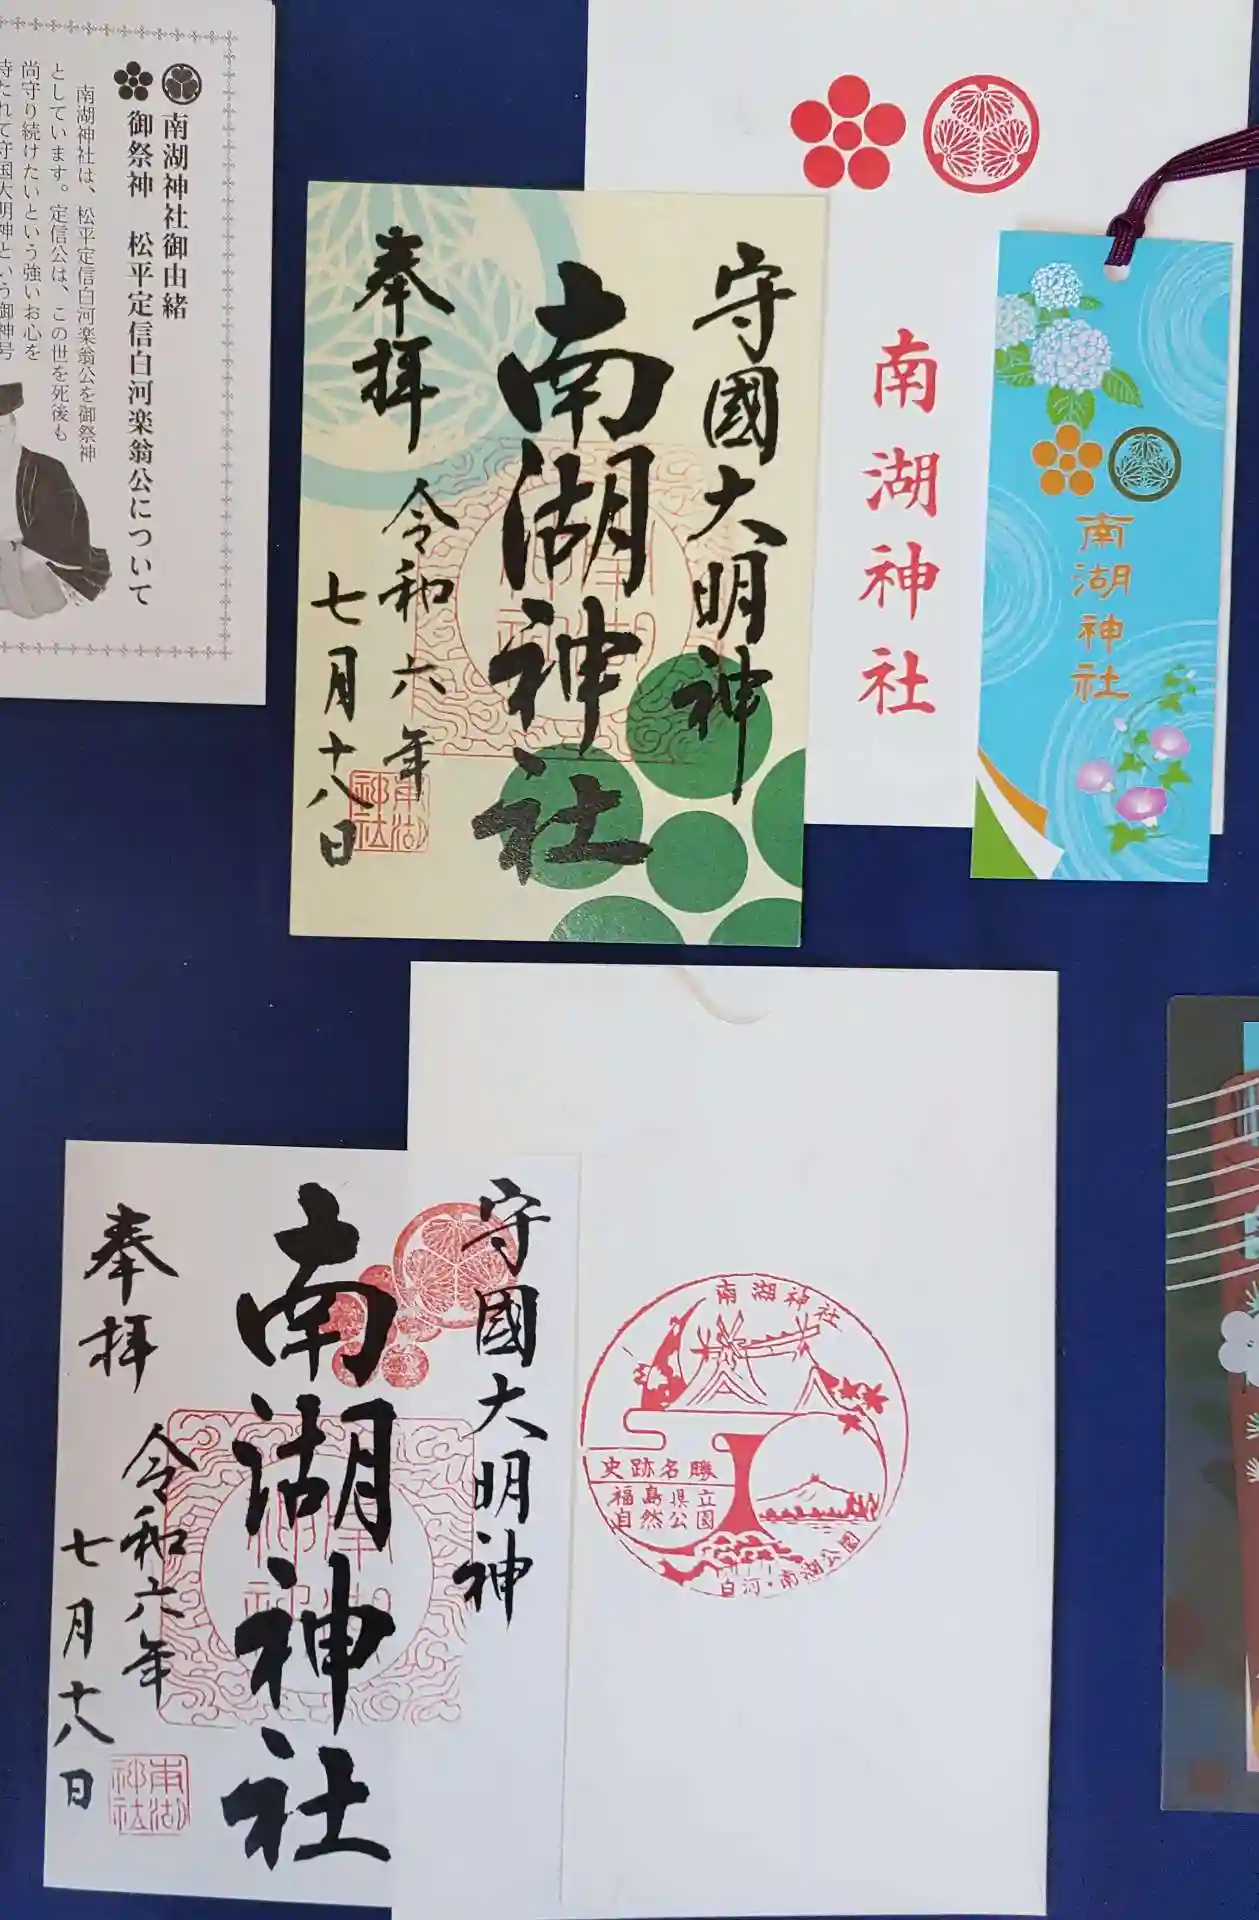 南湖神社御由緒
御祭神 松平定信白河楽翁公について
南湖神社は、松平定信白河楽翁公を御祭神
としています。定信公は、この世を死後も
尚守り続けたいという強いお心を
持たれて守国大明神という御神号
守國大明神
南湖神社
奉拝
令和六年
七月十八日
南湖神社
南湖神社
南湖神社
守國大明神
南湖神社
奉拝
令和六年
七月十八日
南湖神社
南湖神社
史跡名勝
福島県立
自然公園
白河・南湖公園